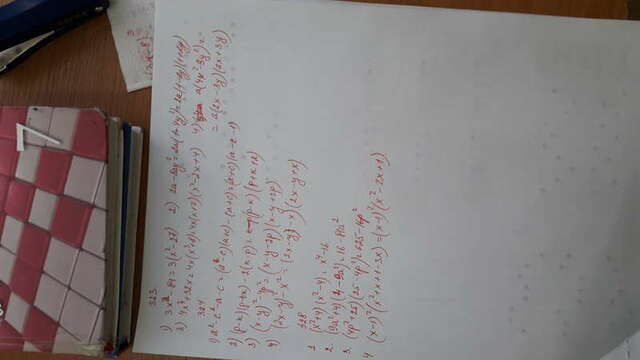 7
323
1) 3x² - 81 = 3(x² - 27) 2) 2a - 8ay² = 2a(1 - 4y²) = 2a(1 - 2y)(1 + 2y)
3) 4x⁴ + 32x = 4x(x³ + 8) = 4x(x + 2)(x² - 2x + 4) 4) a(4x² - 9y²) =
= a(2x - 3y)(2x + 3y)
324
1) a² - c² - a - c = (a - c)(a + c) - (a + c) = (a + c)(a - c - 1)
3) (x - y)² - 4p² = (x - y - 2p)(x - y + 2p)
4) (2x - y)² - x² = (2x - y - x)(2x - y + x)
328
1. (x² + 4)(x² - 4) = x⁴ - 16
2. (9a² + 4)(4 - 9a²) = 16 - 81a²
3. (4p² + 25)(25 - 4p²) = 625 - 16p²
4 (x - 1)²(x² + x + 1 - 3x) = (x - 1)²(x² - 2x + 1)